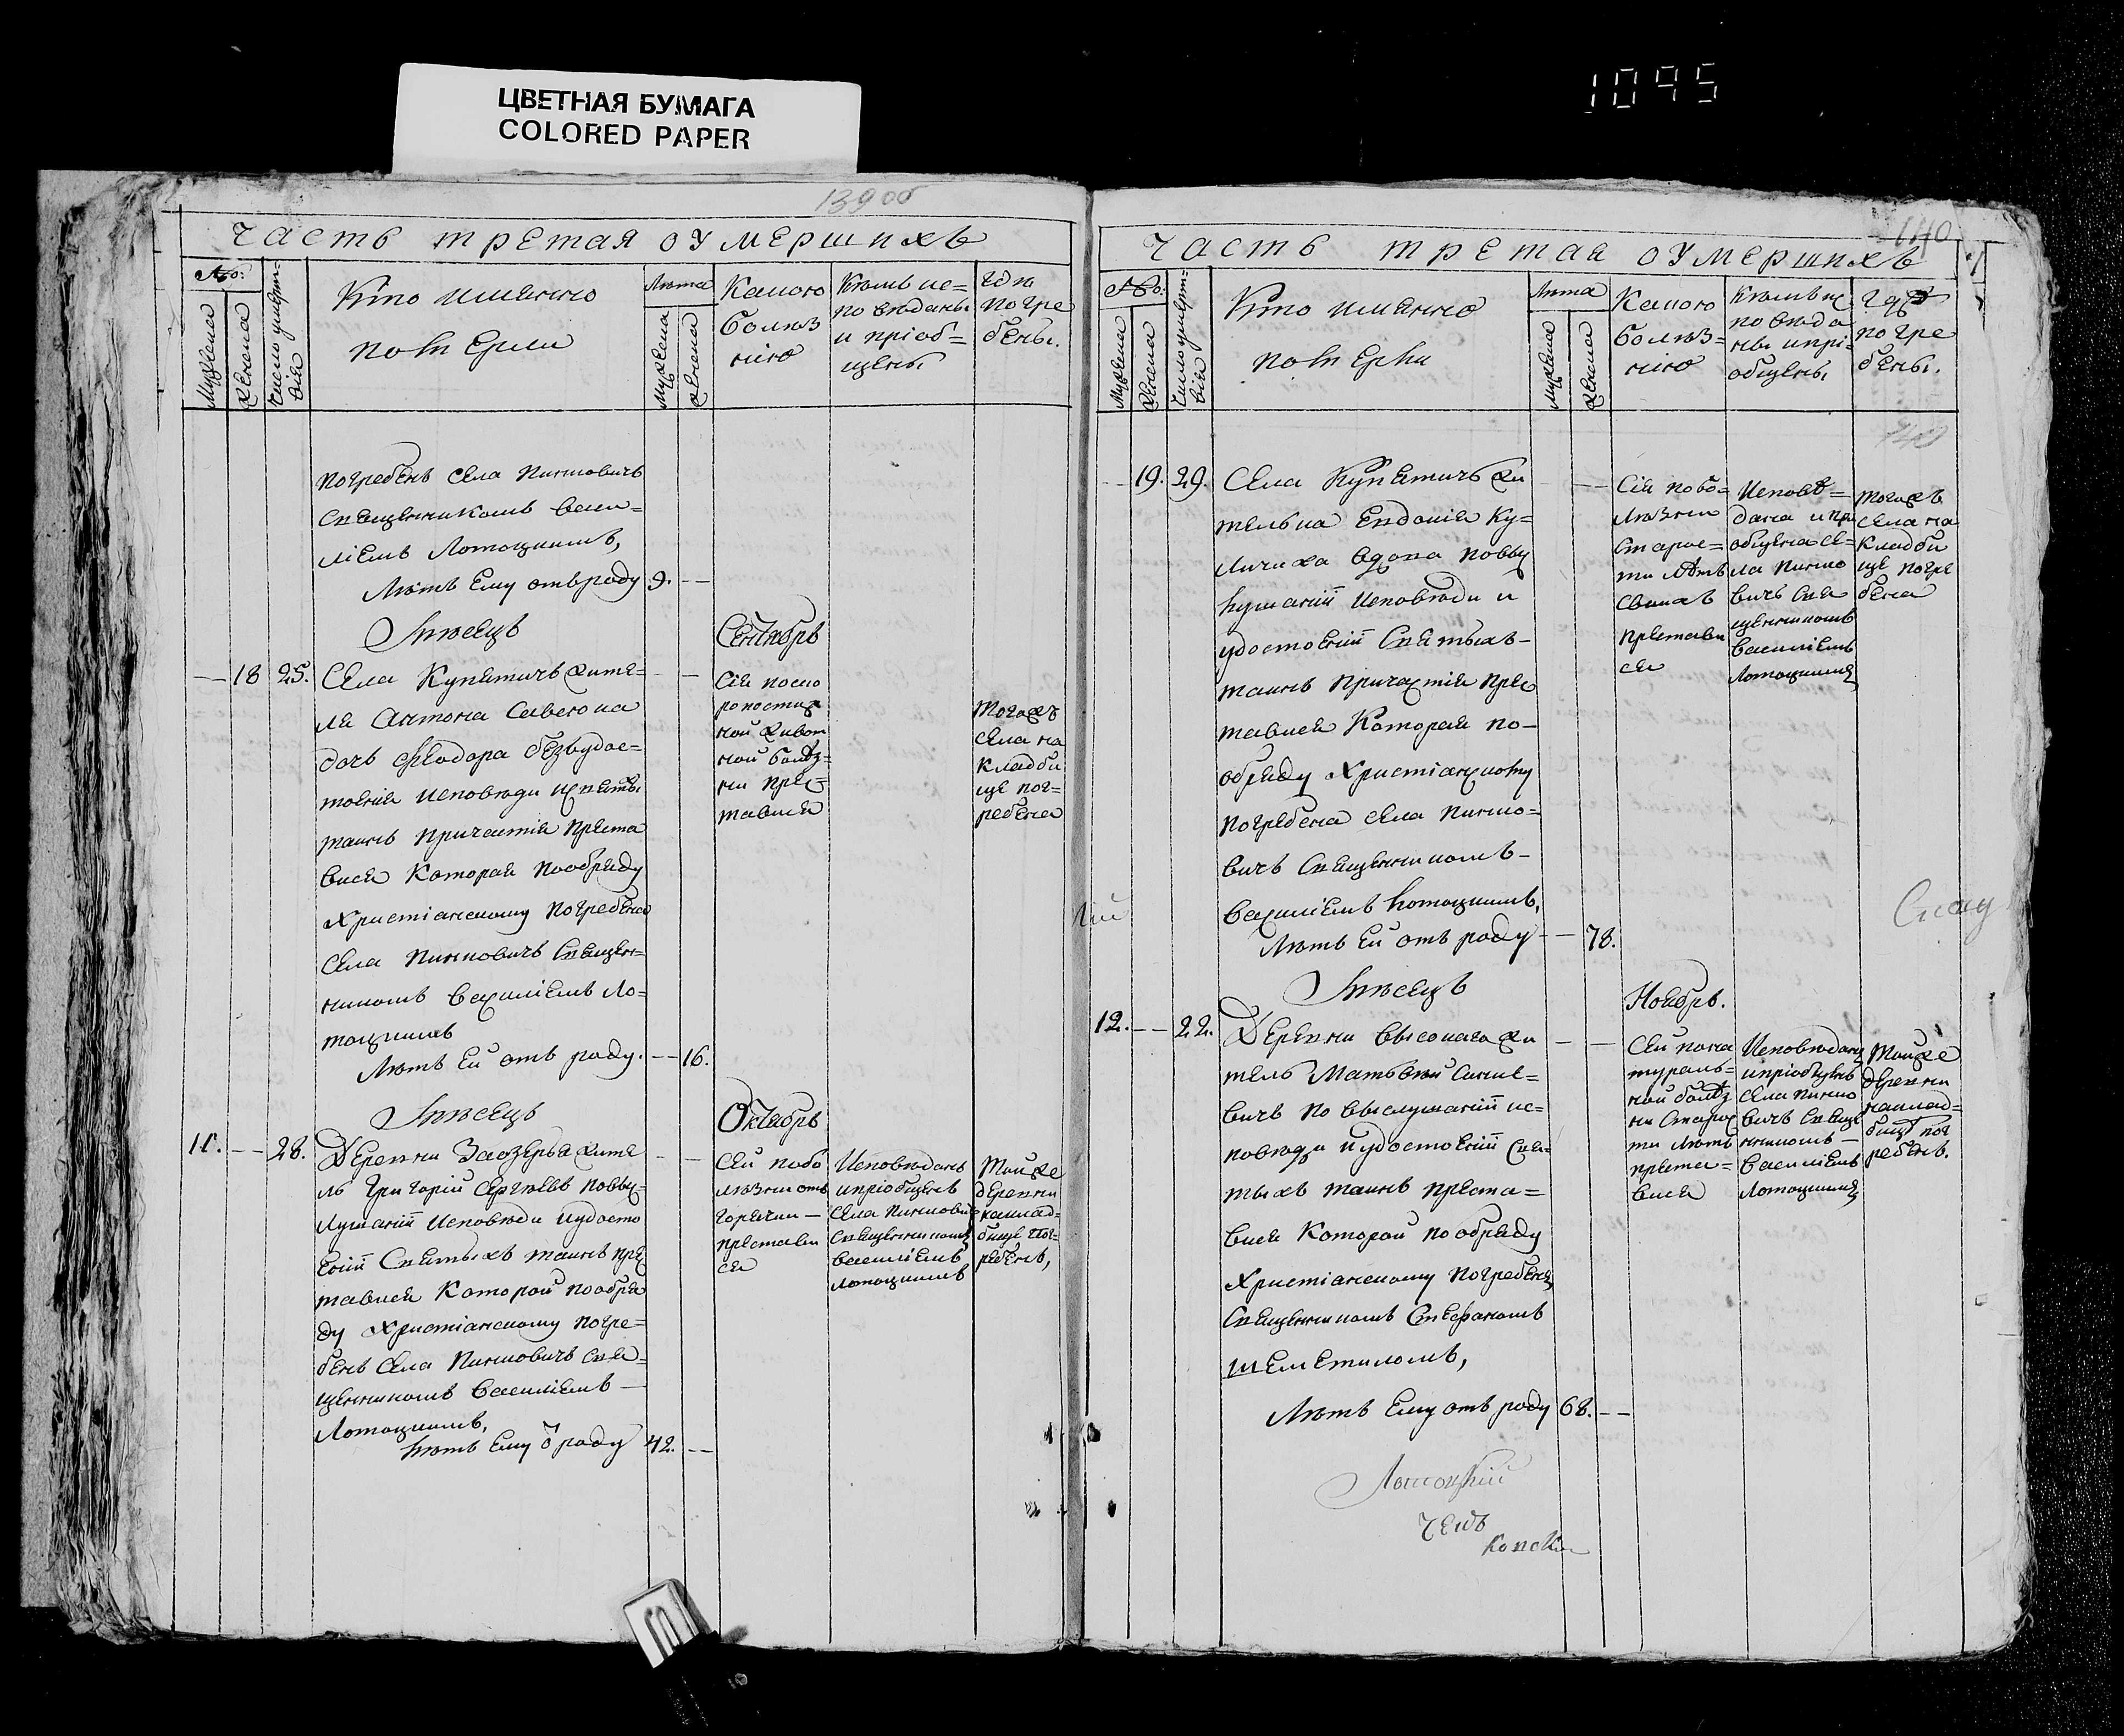 ЦВЕТНАЯ БУМАГА
COLORED PAPER
1095
139 об
Часть третая оумершихъ
№:
Мужеска
Женска
Число умерт-
вія
Кто именно
померли
Лѣта
Мужеска
Женска
Какою
болѣз
нію
Кѣмъ ис=
повѣданы
и пріоб=
щены
Где
погре
бены.
погребенъ села Пинковичъ
Священникомъ Васи=
ліемъ Лотоцкимъ,
Лѣтъ ему отъ роду 9. —
Мѣсецъ
Сентябрь
— 18 25. Села Купятичъ жите=
ля Антона Савеюка
дочь Феодора безъ удос=
тоенія исповѣди и святы
таинъ причастія преста
вися Которая по обряду
Христіанскому погребена
села Пинковичъ священ=
никомъ Василіемъ Ло=
тоцкимъ
Лѣтъ ей отъ роду. — 16.
Сія поско
ропостиж
ной живот
ной болѣз=
ни прес=
тавися
Тогожъ
села на
кладби
ще пог=
ребена
Мѣсецъ
Октябрь
11. — 28. Деревни Заозерья жите
ль Григорій Сергѣевъ по вы=
слушаніи исповѣди и удосто
еніи Святыхъ таинъ прес
тавися Которой по обря
ду Христіанскому погре=
бенъ села Пинковичъ свя=
щенникомъ Василіемъ —
Лотоцкимъ,
Лѣтъ ему о роду 42. —
Сей по бо
лѣзни отъ
горячки —
престави
ся
Исповѣданъ
и пріобщенъ
села Пинкович
священникомъ
Василіемъ
Лотоцкимъ
Тойже
деревни
на клад=
бище пог=
ребенъ,
140
Часть третая оумершихъ
№:
Мужеска
Женска
Число умерт=
вія
Кто именно
померли
Лѣта
Мужеска
Женска
Какою
болѣз=
нію
Кѣмъ ис
повѣда
ны и прі=
общены
Где
погре
бены.
140
— 19. 29. Села Купятичъ жи
тельна Евдокія Ку=
личиха вдова по вы
слушаніи исповѣди и
удостоеніи Святыхъ —
таинъ причастія прес
тавися Которая по —
обряду Христіанскому
погребена села Пинко=
вичъ Священникомъ —
Василіемъ Лотоцкимъ,
Лѣтъ ей отъ роду — 78.
Сія по бо=
лѣзни
старос=
ти лѣтъ
своихъ
престави
ся
Исповѣ=
дана и при
общена се=
ла Пинко
вичъ свя
щенникомъ
Василіемъ
Лотоцкимъ
Тогожъ
села на
кладби
ще погре
бена
Мѣсецъ
Ноябрь.
12. — 22. Деревни Высокаго жи
тель Матвей Сине=
вичъ по выслушаніи ис=
повѣди и удостоеніи Свя=
тыхъ таинъ преста=
вися Которой по обряду
Христіанскому погребенъ
Священникомъ Стефаномъ
Шеметиломъ,
Лѣтъ ему отъ роду 68. —
Сей по на
тураль=
ной болѣз
ни старос
ти лѣтъ
преста=
вися
Исповѣданъ
и пріобщенъ
села Пинко
вичъ свяще
нникомъ —
Василіемъ
Лотоцкимъ
Тойже
деревни
на клад=
бище пог
ребенъ.
Лотоцкій